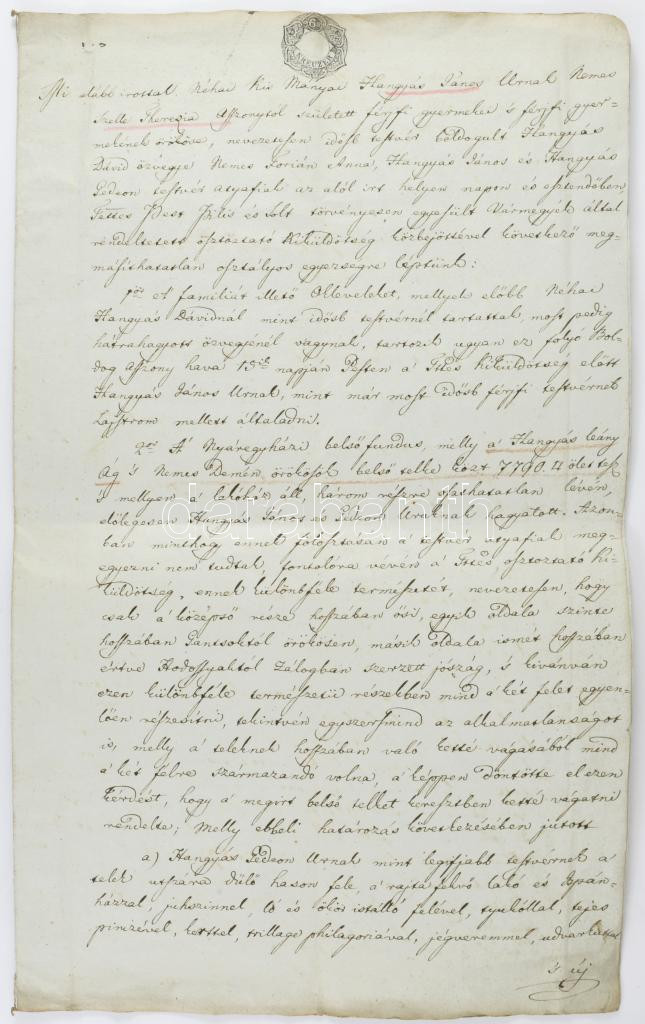 6
KREUZER
Mi alább irottak Néhai Kis Mányai Hangyás János Urnak Nemes
Szelle Theresia Aszszonytól született férjfi gyermekei 's férjfi gyer-
mekének örököse, nevezetesen idősb testvér boldogult Hangyás
Dávid özvegye Nemes Forián Anna, Hangyás János és Hangyás
Gedeon testvér atyafiak az alól irt helyen napon és esztendőben
Tettes Pest Pilis és Solt törvényesen egyesült Vármegyék által
rendeltetett osztoztató Kiküldöttség közbejöttével következő meg-
másíthatatlan osztályos egyezségre léptünk:
1ör A' familiát illető Okleveleket, mellyek előbb Néhai
Hangyás Dávidnál mint idősb testvérnél tartattak, most pedig
hátrahagyott özvegyénél vagynak, tartozik ugyan ez folyó Bol-
dog Aszszony hava 15ik napján Pesten a' Tttes Kiküldöttség előtt
Hangyás János Urnak, mint már most idősb férjfi testvérnek
Lajstrom mellett általadni.
2or A' Nyáregyházi belső fundus, melly a' Hangyás leány
Ág 's Nemes Demén örökösök belső telke közt 7790 □ ölet tesz
's mellyen a' lakóház áll, három részre oszthatatlan lévén,
előlegesen Hangyás János és Gedeon Uraknak hagyatott. Azon-
ban minthogy ennek fölosztásán a' testvér atyafiak meg-
egyezni nem tudtak, fontolóra vévén a' Tttes osztoztató Ki-
küldöttség, ennek különbféle természetét, nevezetesen, hogy
csak a' középső része hoszszában ősi, egyik oldala szinte
hoszszában Gantsoktól örökösen, másik oldala ismét hoszszában
értve Hodossyaktól Zálogban szerzett jószág, 's kivánván
ezen különbféle természetü részekben mind a' két felet egyen-
lően részesítni, tekintvén egyszersmind az alkalmatlanságot
is, melly a' teleknek hoszszában való ketté vágásából mind
a' két félre származandó volna, a'képpen döntötte el ezen
kérdést, hogy a' megirt belső telket keresztben ketté vágatni
rendelte; Melly ebbeli határozás következésében jutott
a) Hangyás Gedeon Urnak mint legifjabb testvérnek a'
telek utszára dülő hason fele, a' rajta fekvő lakó és Ispán-
házzal, juhszinnel, ló és ökör istálló felével, tyukóllal, tejes
pinczével, kerttel, trillage philagoriával, jégveremmel, udvarkuttal
's új
darabanth